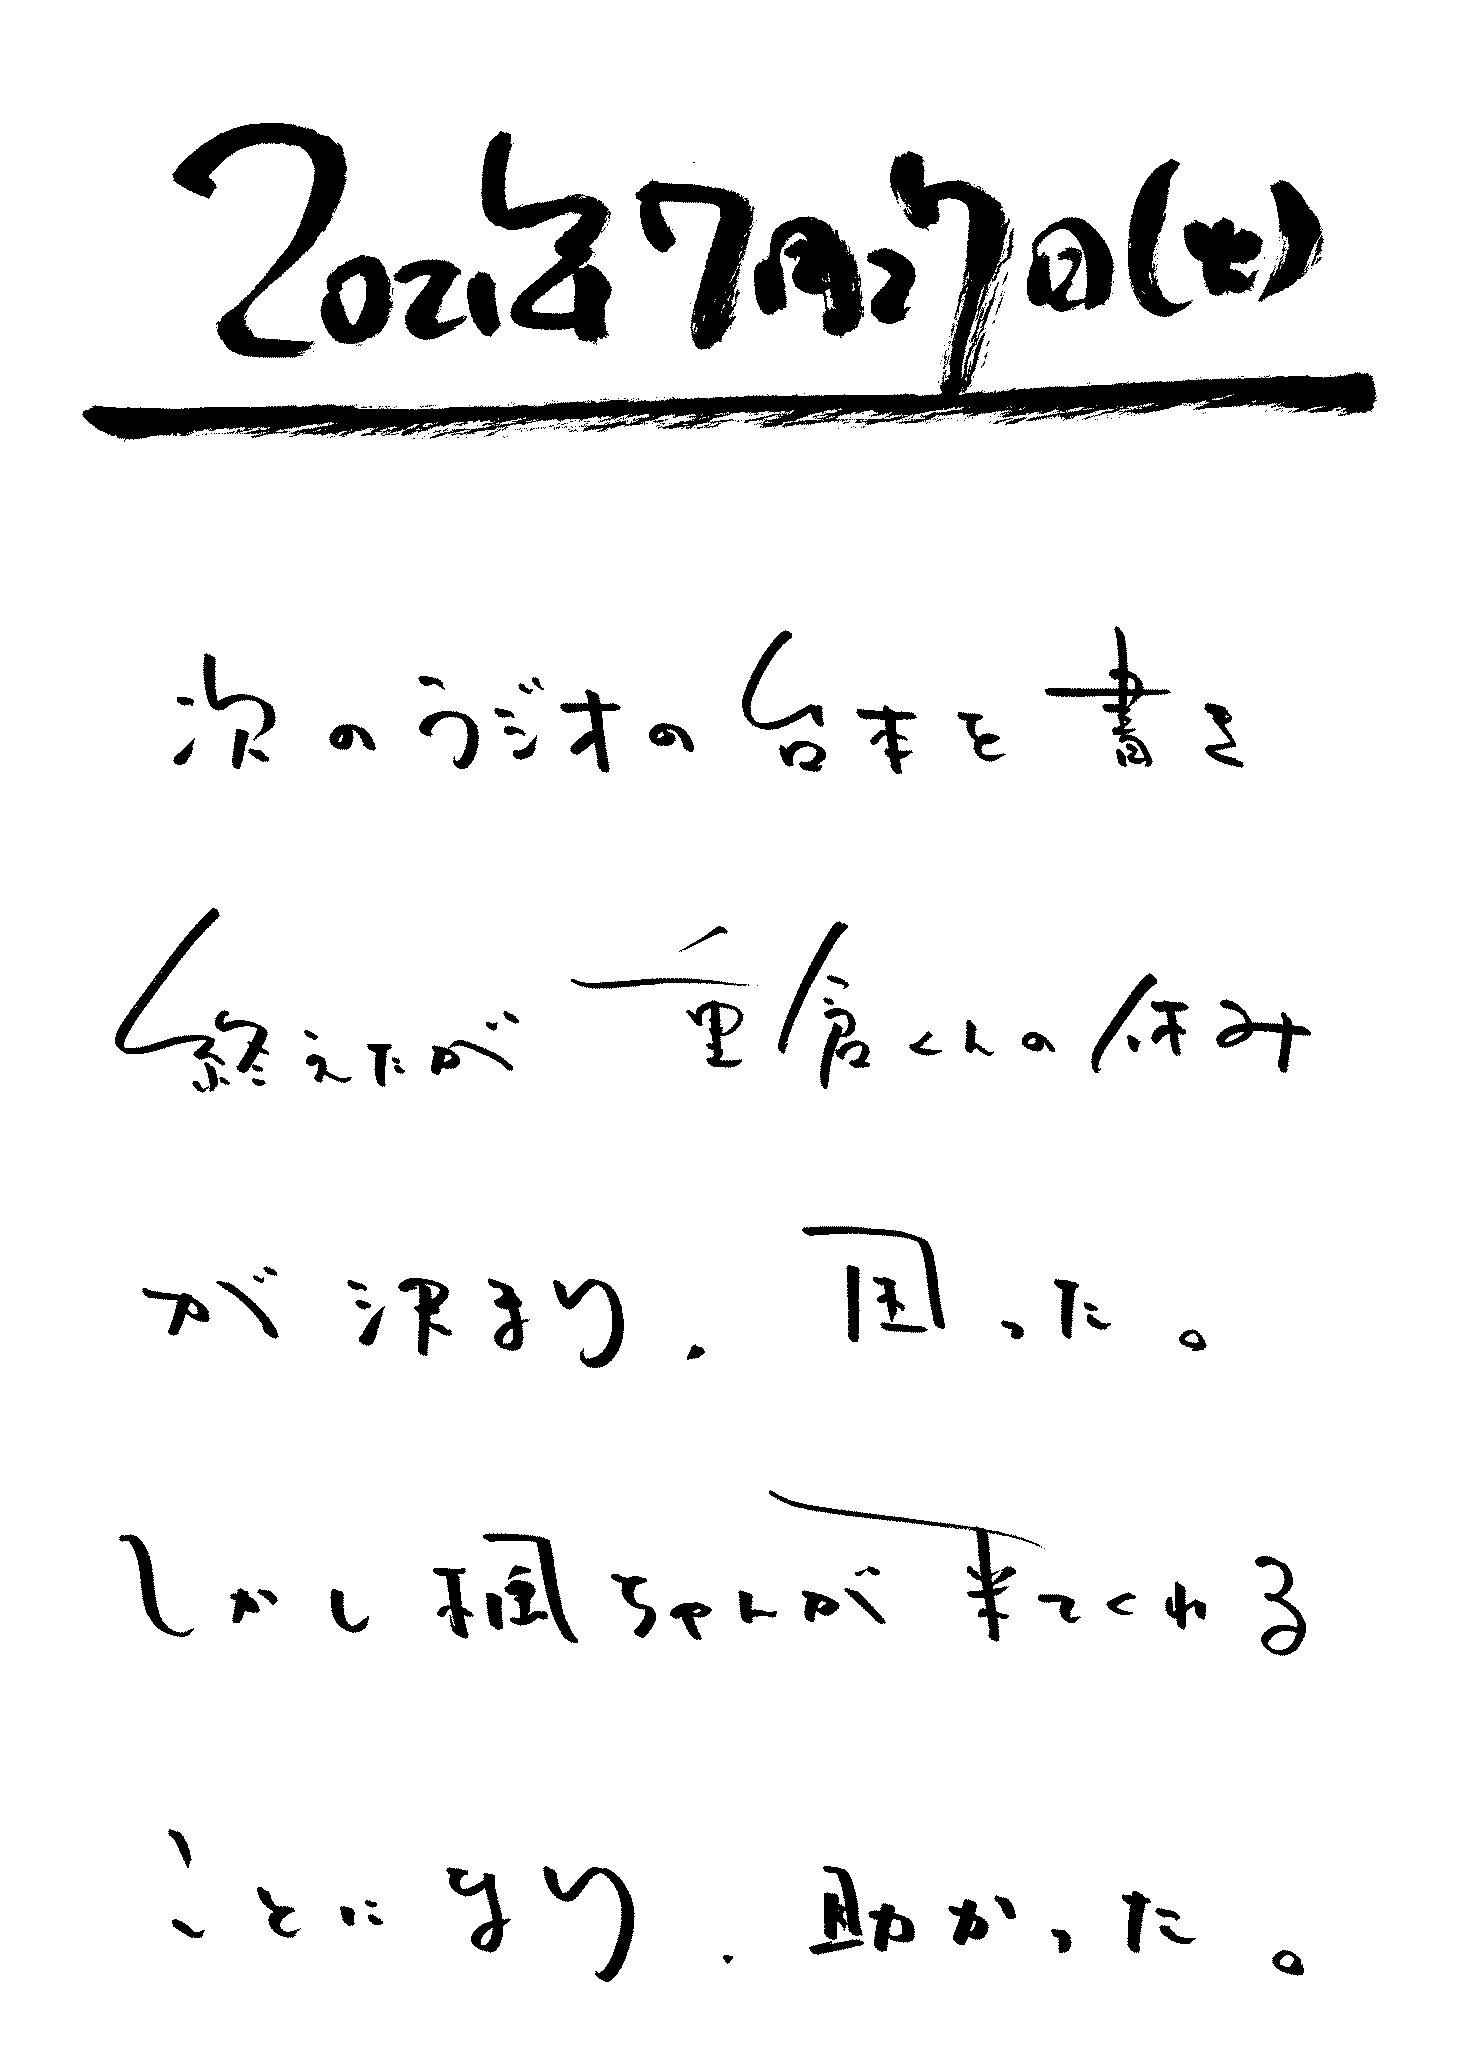 2021年7月27日(火)
次のラジオの台本を書き
終えたが重倉くんの休み
が決まり、困った。
しかし楓ちゃんが来てくれる
ことになり、助かった。